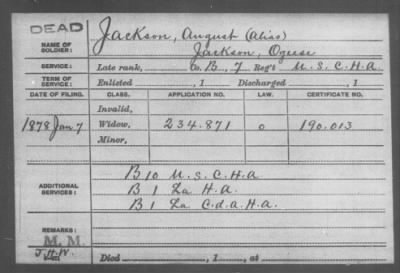 DEAD
Jackson, August (Alias)
NAME OF SOLDIER: Jackson, Oguse
SERVICE: Late rank, Co. B, 7 Reg't U.S.C.H.A.
TERM OF SERVICE: Enlisted , 1 Discharged , 1
DATE OF FILING. CLASS. APPLICATION NO. LAW. CERTIFICATE NO.
Invalid,
1878 Jan 7 Widow, 234.871 0 190.013
Minor,
ADDITIONAL SERVICES: B 10 U.S.C.H.A.
B 1 La H.A.
B 1 La C.d.A.H.A.
REMARKS:
M.M.
J.H.W. Died , 1 , at